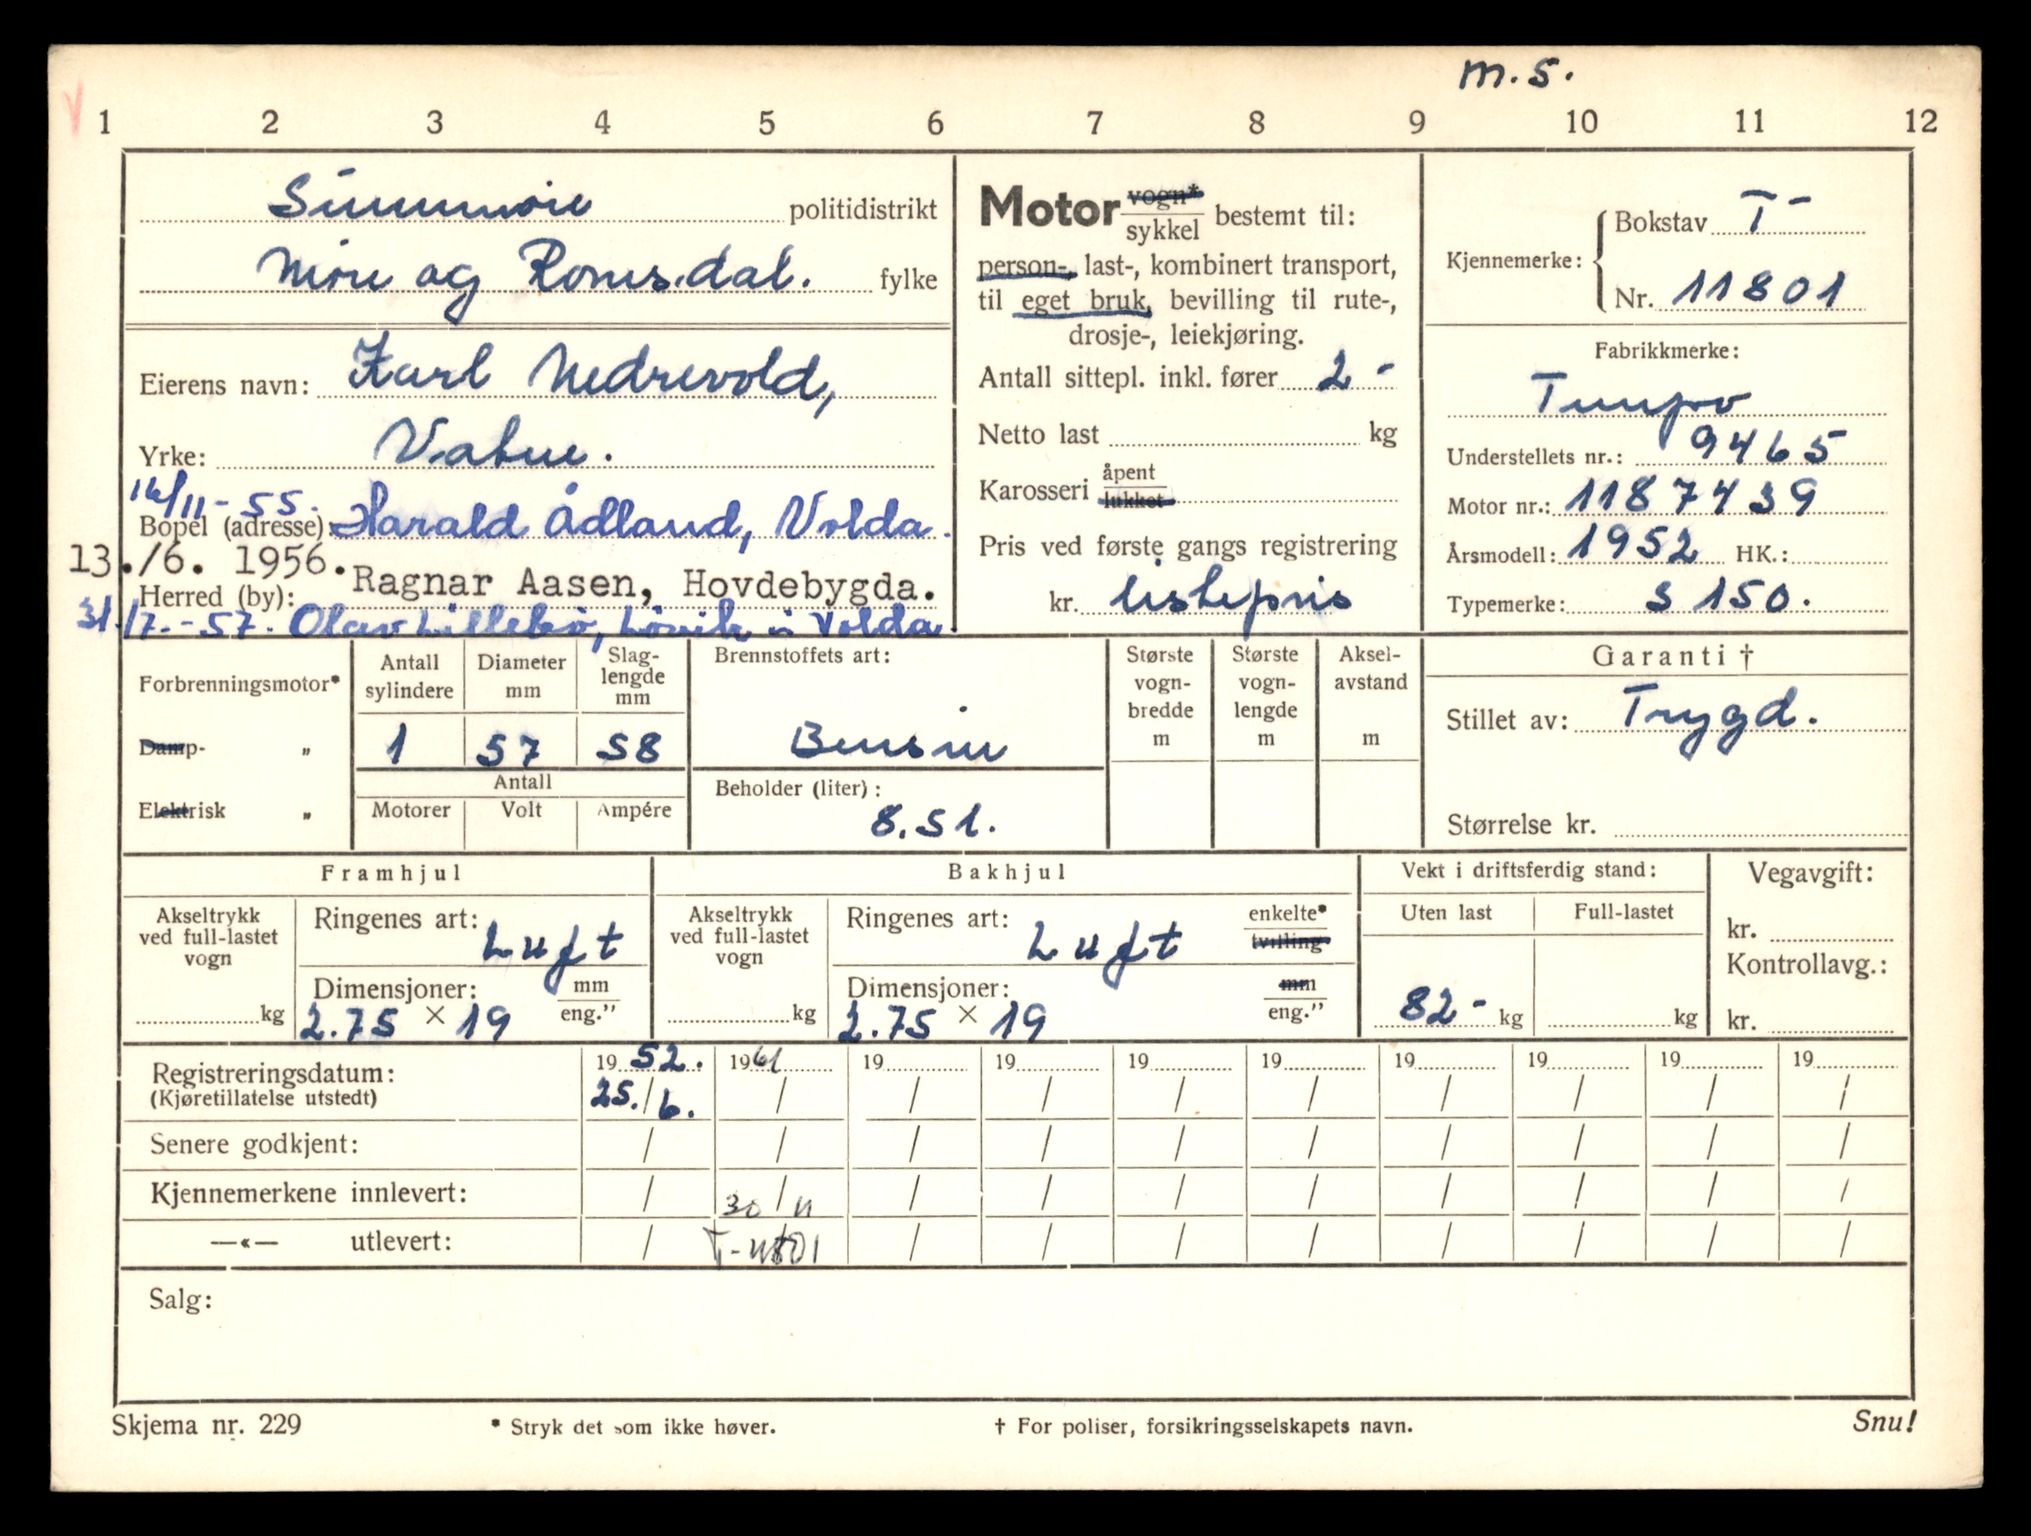 m. s.
1 2 3 4 5 6 7 8 9 10 11 12
Sunnmøre politidistrikt
Møre og Romsdal. fylke
Eierens navn: Karl Nedrevold,
Yrke: Vatne.
16/11-55.
Bopel (adresse): Harald Ådland, Volda.
13./6. 1956. Ragnar Aasen, Hovdebygda.
Herred (by):
31./7.-57. Olav Lillebø, Løvik i Volda
Motor vogn* / sykkel bestemt til:
person-, last-, kombinert transport,
til eget bruk, bevilling til rute-,
drosje-, leiekjøring.
Antall sittepl. inkl. fører 2-
Netto last kg
Karosseri åpent / lukket
Pris ved første gangs registrering
kr. listepris
Kjennemerke: Bokstav T-
Nr. 11801
Fabrikkmerke:
Tempo
Understellets nr.: 9465
Motor nr.: 1187439
Årsmodell: 1952 HK.:
Typemerke: S 150.
Forbrenningsmotor*
Damp- „
Elektrisk „
Antall sylindere
Diameter mm
Slag-lengde mm
1 57 58
Antall
Motorer Volt Ampére
Brennstoffets art:
Bensin
Beholder (liter):
8.5 l.
Største vogn-bredde m
Største vogn-lengde m
Aksel-avstand m
Garanti †
Stillet av: Trygd.
Størrelse kr.
Framhjul
Akseltrykk ved full-lastet vogn
kg
Ringenes art: Luft
Dimensjoner: mm / eng."
2.75 × 19
Bakhjul
Akseltrykk ved full-lastet vogn
kg
Ringenes art: Luft enkelte* / tvilling
Dimensjoner: mm / eng."
2.75 × 19
Vekt i driftsferdig stand:
Uten last Full-lastet
82- kg kg
Vegavgift:
kr.
Kontrollavg.:
kr.
Registreringsdatum: 19 52. 19 61 19 19 19 19 19 19 19 19
(Kjøretillatelse utstedt) 25./6. / / / / / / / / /
Senere godkjent: / / / / / / / / / /
Kjennemerkene innlevert: / 30/11 / / / / / / / /
—«— utlevert: / T-11801 / / / / / / / /
Salg:
Skjema nr. 229 * Stryk det som ikke høver. † For poliser, forsikringsselskapets navn. Snu!